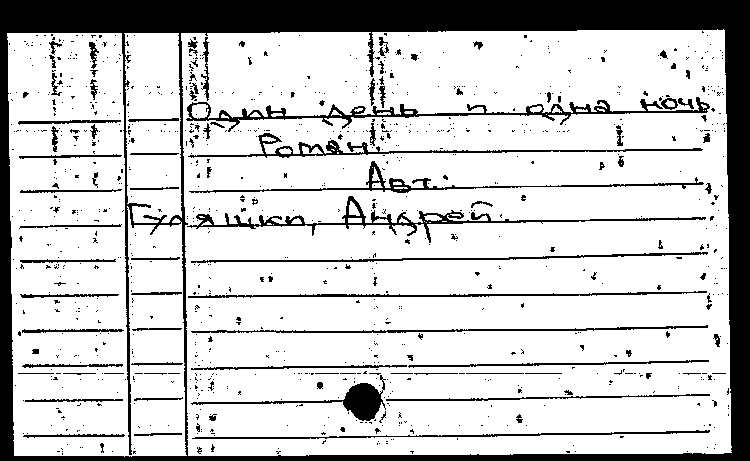 Один день и одна ночь.
Роман.
Авт.:
Гуляшки, Андрей.